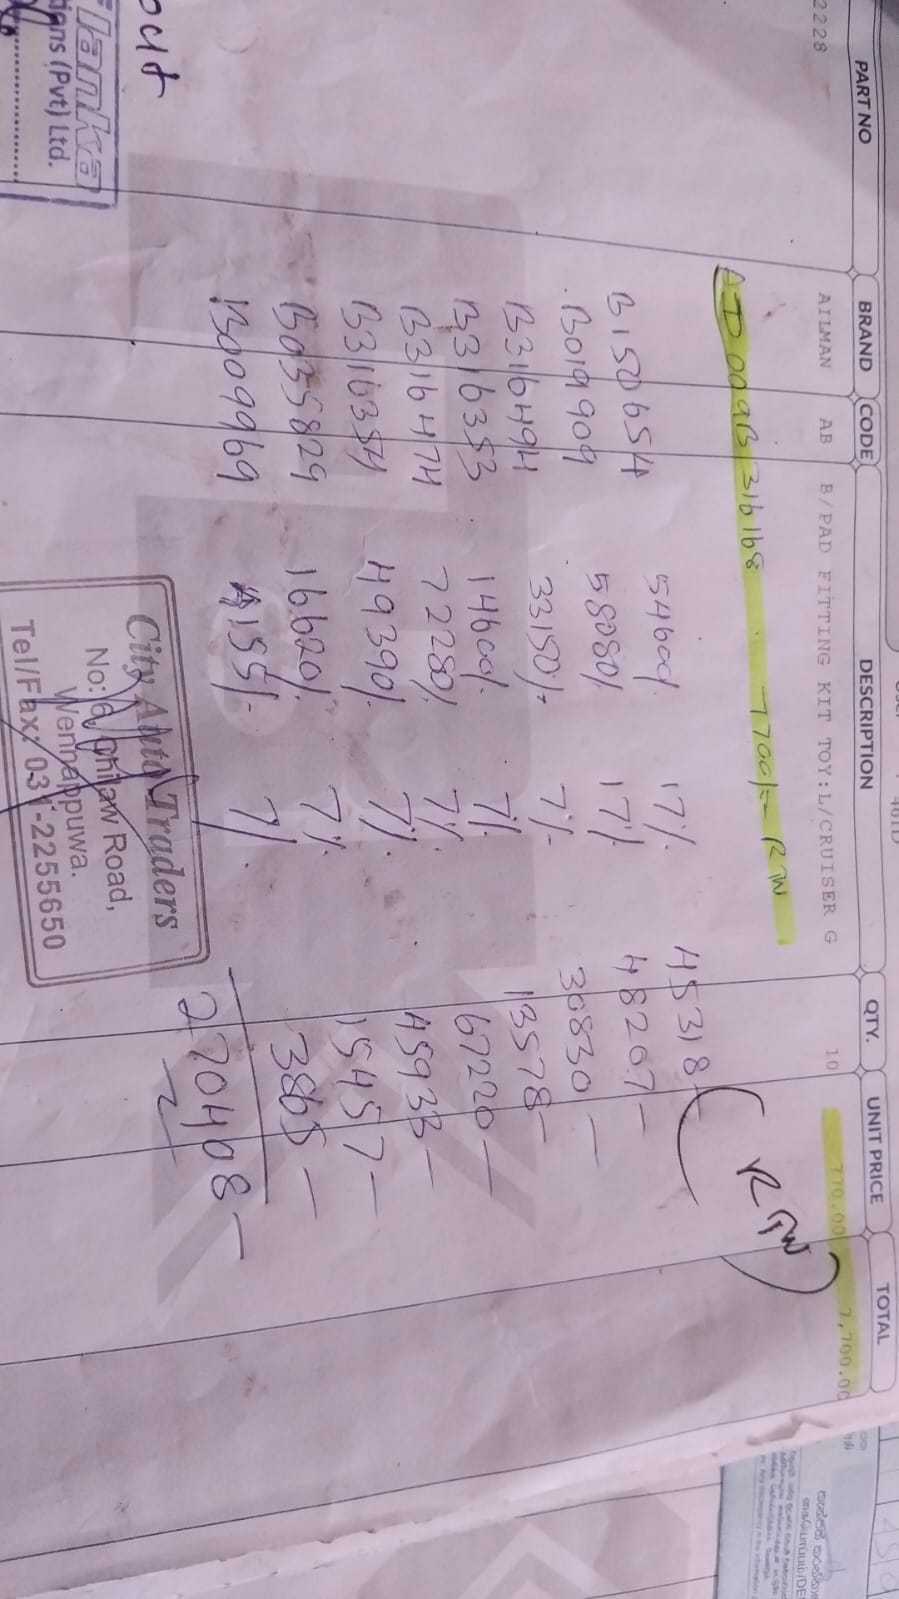 PART NO BRAND CODE DESCRIPTION QTY. UNIT PRICE TOTAL
2228 AILMAN AB B/PAD FITTING KIT TOY:L/CRUISER G 10 770.00 7,700.00
AD 009B 316168 7700/= RTW
(RTW)
B150654 54600/. 17% 45318-
B019909 58080/. 17% 48207-
B316494 33150/- 7/- 30830-
B316353 14600/. 7/. 13578-
B316474 72280/. 7%. 67220-
B316354 49390/. 7%. 45933-
B035829 16620/. 7%. 15457-
B009969 4155/- 7/. 3865-
270408-
City Auto Traders
Chilaw Road,
Wennappuwa.
Tel/Fax: 031-2255650
out
lanka
(Pvt) Ltd.